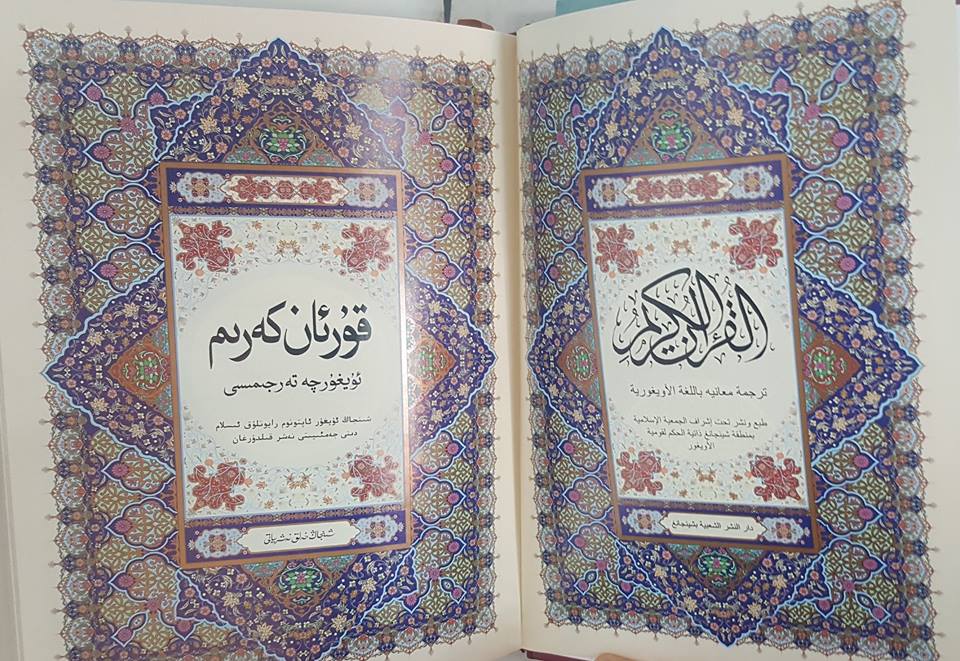 القرآن الكريم
ترجمة معانيه باللغة الأويغورية
طبع ونشر تحت إشراف الجمعية الإسلامية
بمنطقة شينجانغ ذاتية الحكم لقومية
الأويغور
دار النشر الشعبية بشينجانغ
قۇرئان كەرىم
ئۇيغۇرچە تەرجىمىسى
شىنجاڭ ئۇيغۇر ئاپتونوم رايونلۇق ئىسلام
دىنى جەمئىيىتى نەشر قىلدۇرغان
شىنجاڭ خەلق نەشرىياتى